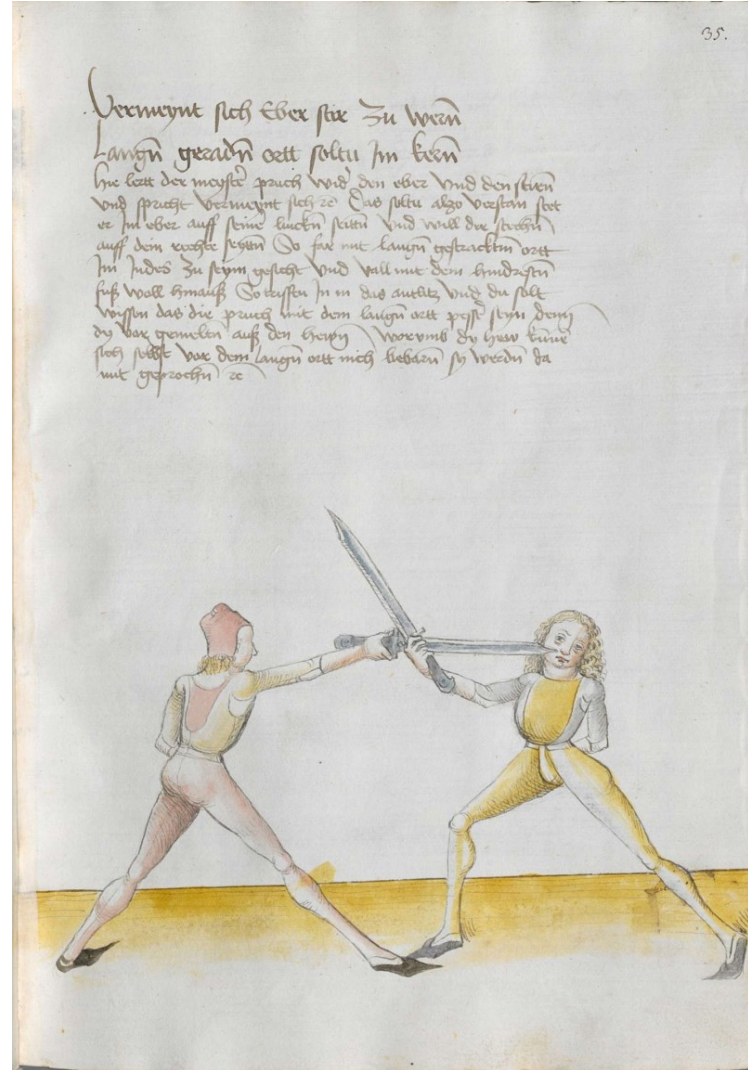 35.
Vermeynt sich Eber stir zu wern̄
Langn̄ geradn̄ ortt soltu Im kern̄
hie lertt der meyster pruch wid' den eber Vnd den stirn̄
Vnd spricht vermeynt sich ꝛc Das soltu also verstan stet
er Im eber auff seine linckn̄ seittn̄ Vnd will dir stechn̄
auff dein rechte seyttn̄ So far mit langn̄ gestracktm ortt
Im Indes zu seym gesicht Vnd vall mit dem hindrestn̄
fuß woll hinauß So trifftu In in das antlitz Vnd du solt
wissen das die pruch mit dem langn̄ ortt pesser seyn denn
dy vor gemeltn̄ auß den hewn̄ worvmb dy hew kunē
sich selbst vor dem langn̄ ortt nich bebarn̄ sy werdn̄ da
mit geprochn̄ ꝛc